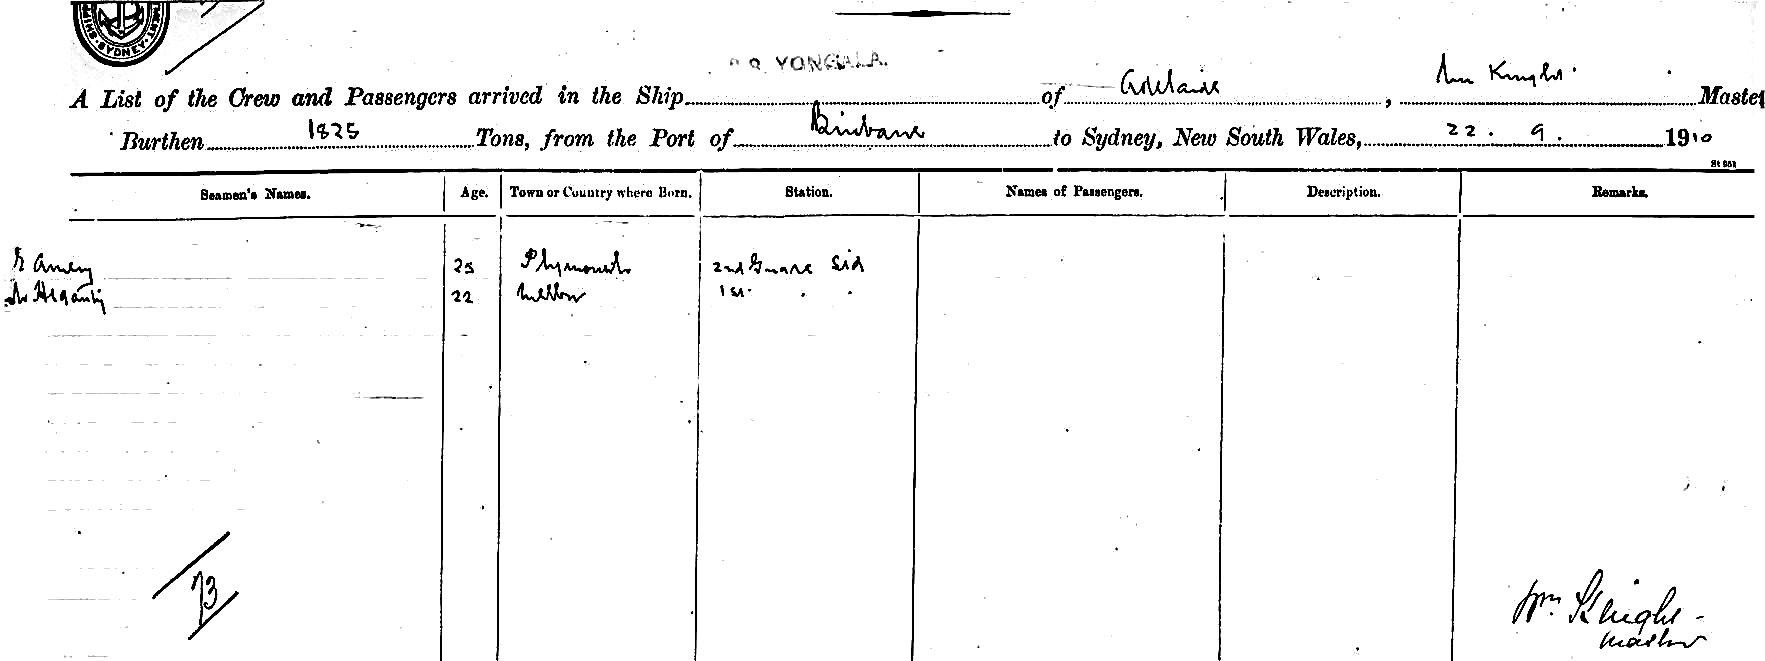 SYDNEY
S.S. YONGALA.
A List of the Crew and Passengers arrived in the Ship of Adelaide, Wm Knight Master
Burthen 1825 Tons, from the Port of Brisbane to Sydney, New South Wales, 22. 9. 1910
St 951
Seamen's Names. Age. Town or Country where Born. Station. Names of Passengers. Description. Remarks.
25 Plymouth 2nd Sid
22 Melbn 1st . .
73
Wm Knight -
Master